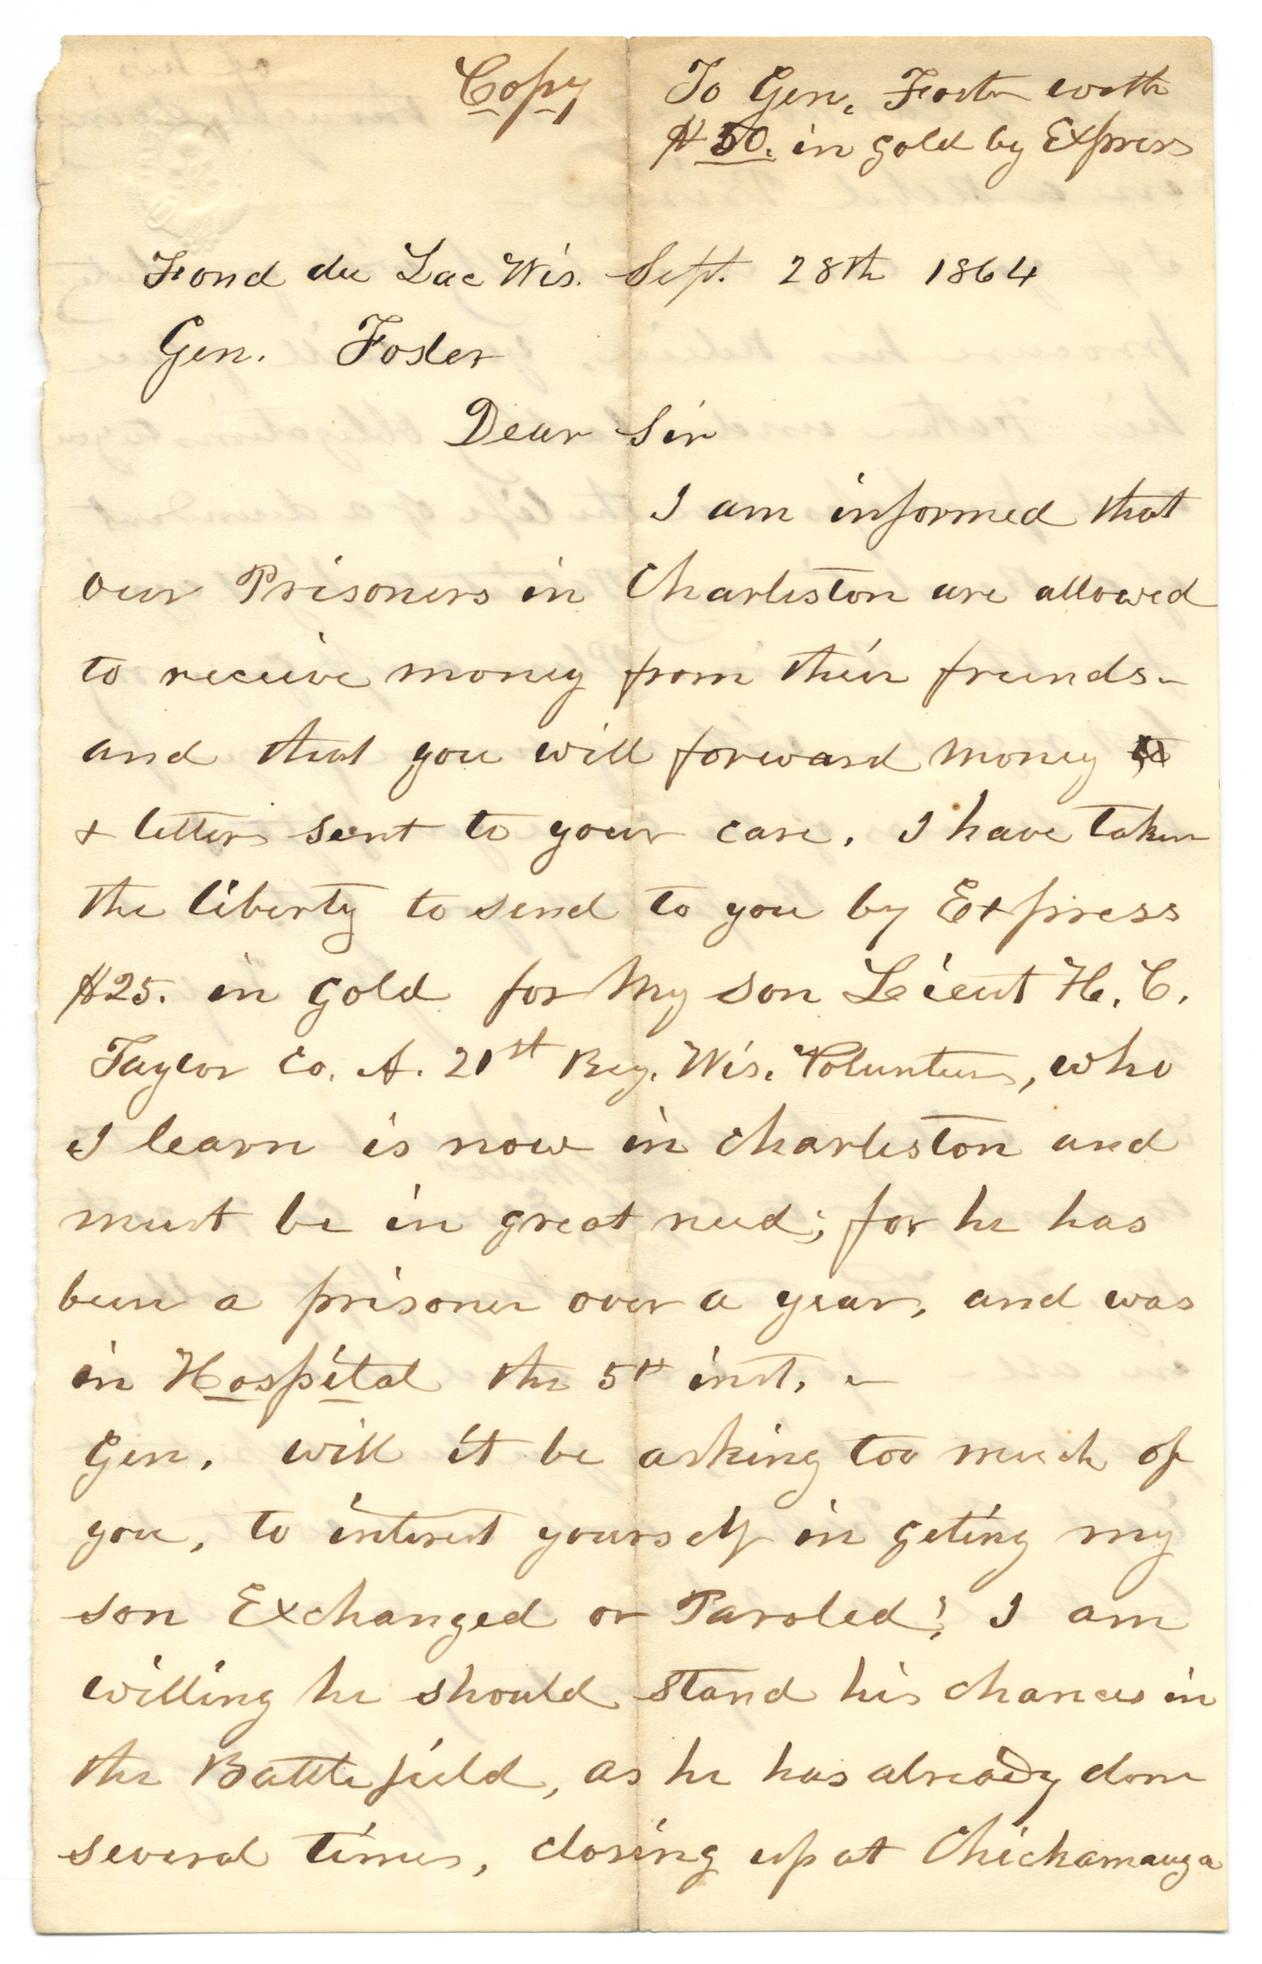 Copy
To Gen. Foster with
$50. in gold by Express
Fond du Lac Wis. Sept. 28th 1864
Gen. Foster
Dear Sir
I am informed that
our Prisoners in Charleston are allowed
to receive money from their friends -
and that you will forward money
& letters sent to your care. I have taken
the liberty to send to you by Express
$25. in gold for My son Lieut H. C.
Taylor Co. A. 21st Reg. Wis. Volunteers, who
I learn is now in Charleston and
must be in great need; for he has
been a prisoner over a year, and was
in Hospital the 5th inst. -
Gen. will it be asking too much of
you, to interest yourself in geting my
son Exchanged or Paroled? I am
willing he should stand his chances in
the Battlefield, as he has already done
several times, closing up at Chickamauga